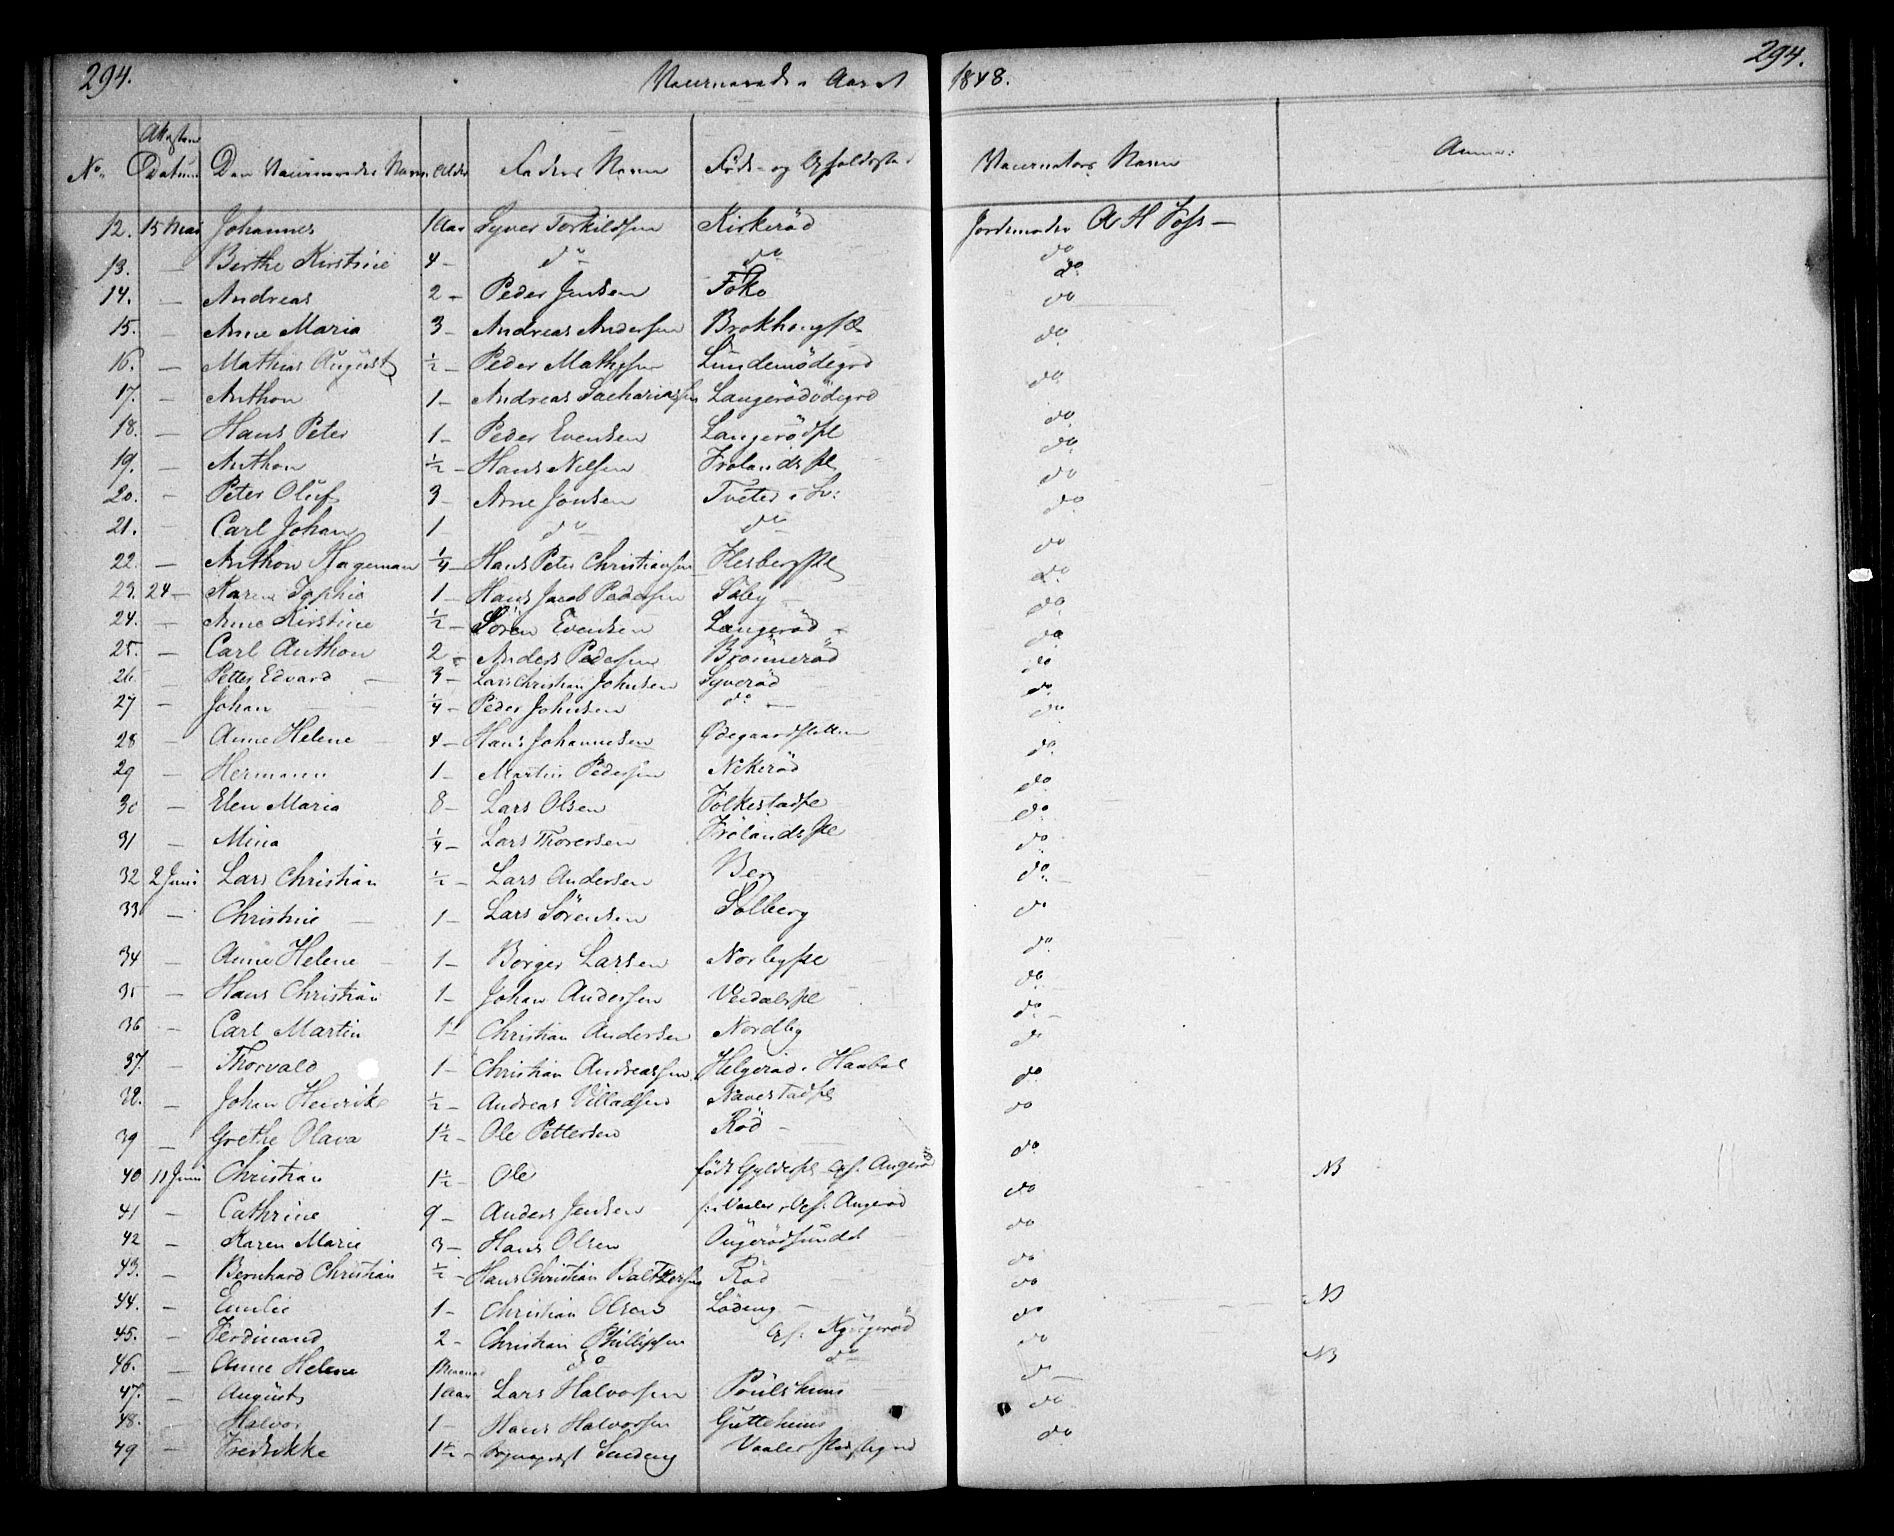 294. Vaccinerede i Aaret 1848. 294.
No. Attestens Datum Den Vaccineredes Navn Alder Faders Navn Føde- og Opholdssted Vaccinators Navn Anm:
12. 15 Mai Johannes 1 Aar Syver Torkildsen Kirkeröd Jordemoder A H Foss
13. — Birthe Kirstine 4 — do do do
14. — Andreas 2 — Peder Jensen Foko do
15. — Anne Maria 3 — Andreas Andersen do
16. — Mathias August ½ — Peder Mathisen Lundemödegrd do
17. — Anthon 1 — Andreas Sachariassen Langerödödegrd do
18. — Hans Peter 1 — Peder Evensen Langerödpl do
19. — Anthon ½ — Hans Nilsen Frolandspl do
20. — Peter Oluf 3 — Arne Jonsen Tveter i Sv: do
21. — Carl Johan 1 — do do do
22. — Anthon Hageman ¼ — Hans Peter Christiansen do
23. 24 — Karen Sophie 1 — Hans Jacob Pedersen Soby do
24. — Anne Kirstine ½ — Sören Evensen Langeröd do
25. — Carl Anthon 2 — Anders Pedersen Brönneröd do
26 — Petter Edvard 3 — Lars Christian Johnsen Syveröd do
27 — Johan ¼ — Peder Johnsen do do
28 — Anne Helene 4 — Hans Johannesen Ødegaardsletten do
29 — Hermann 1 — Martin Pedersen Nekeröd do
30 — Elen Maria 8 — Lars Olsen Folkestadpl do
31 — Mina ¼ — Lars Thorersen Frolandspl do
32 2 Juni Lars Christian ½ — Lars Andersen Berg do
33 — Christine 1 — Lars Sörensen Solberg do
34 — Anne Helene 1 — Borger Larsen Norbypl do
35 — Hans Christian 1 — Johan Andersen Veidalspl do
36 — Carl Martin 1 — Christian Andersen Nordby do
37. — Thorvald 1 — Christian Andreassen Helgeröd i Haabøl do
38. — Johan Henrik ½ — Andreas Villadsen Navestadpl do
39 — Grethe Olava 1½ — Ole Pettersen Röd do
40 11 Juni Christian 1½ — Ole födt Gyldepl Opf. Angeröd do NB
41 — Cathrine 9 — Anders Jensen f. i Vaaler, Opf. Angeröd do
42 — Karen Marie 3 — Hans Olsen Angerödsundet do
43. — Bernhard Christian ½ — Hans Christian Balthersen Röd do
44. — Emilie 1 — Christian Olsen Lödeng do NB
45. — Ferdinand 2 — Christian Phillipsen Opf. Nygeröd do
46. — Anne Helene 1 Maaned do do do NB
47. — August 1 Aar Lars Halvorsen Poulshuus do
48. — Halvor 1 — Hans Halvorsen Guttehuus do
49 — Fredrikke 1½ — Sogneprest Vaaler Prestegrd do